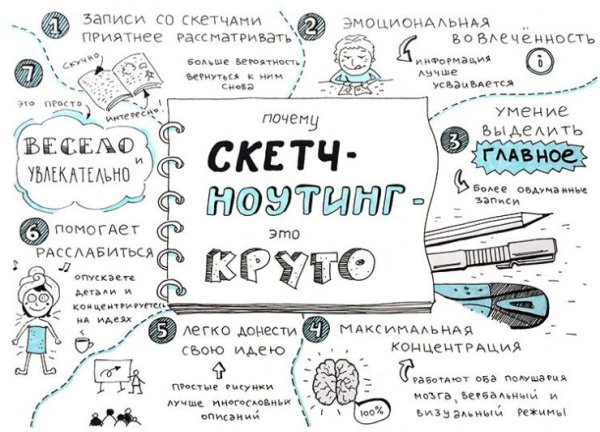 почему
СКЕТЧ-
НОУТИНГ-
это
КРУТО
1 ЗАПИСИ СО СКЕТЧАМИ
ПРИЯТНЕЕ РАССМАТРИВАТЬ
СКУЧНО
ИНТЕРЕСНО!
БОЛЬШЕ ВЕРОЯТНОСТЬ
ВЕРНУТЬСЯ К НИМ
СНОВА
2 ЭМОЦИОНАЛЬНАЯ
ВОВЛЕЧЁННОСТЬ
ИНФОРМАЦИЯ
ЛУЧШЕ
УСВАИВАЕТСЯ
i
3 УМЕНИЕ
ВЫДЕЛИТЬ
ГЛАВНОЕ
БОЛЕЕ ОБДУМАННЫЕ
ЗАПИСИ
4 МАКСИМАЛЬНАЯ
КОНЦЕНТРАЦИЯ
100%
РАБОТАЮТ ОБА ПОЛУШАРИЯ
МОЗГА, ВЕРБАЛЬНЫЙ И
ВИЗУАЛЬНЫЙ РЕЖИМЫ
5 ЛЕГКО ДОНЕСТИ
СВОЮ ИДЕЮ
ПРОСТЫЕ РИСУНКИ
ЛУЧШЕ МНОГОСЛОВНЫХ
ОПИСАНИЙ
6 ПОМОГАЕТ
РАССЛАБИТЬСЯ
ОПУСКАЕТЕ
ДЕТАЛИ И
КОНЦЕНТРИРУЕТЕСЬ
НА ИДЕЯХ
7
ЭТО ПРОСТО
ВЕСЕЛО
И
УВЛЕКАТЕЛЬНО